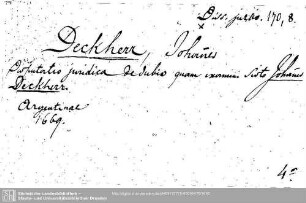 Diss. jurid. 170, 8.
Deckherr, Johañes
Disputatio juridica de dubio quam examini sistit Johañes
Deckherr.
Argentinae
1669.
4°
Sächsische Landesbibliothek -
Staats- und Universitätsbibliothek Dresden